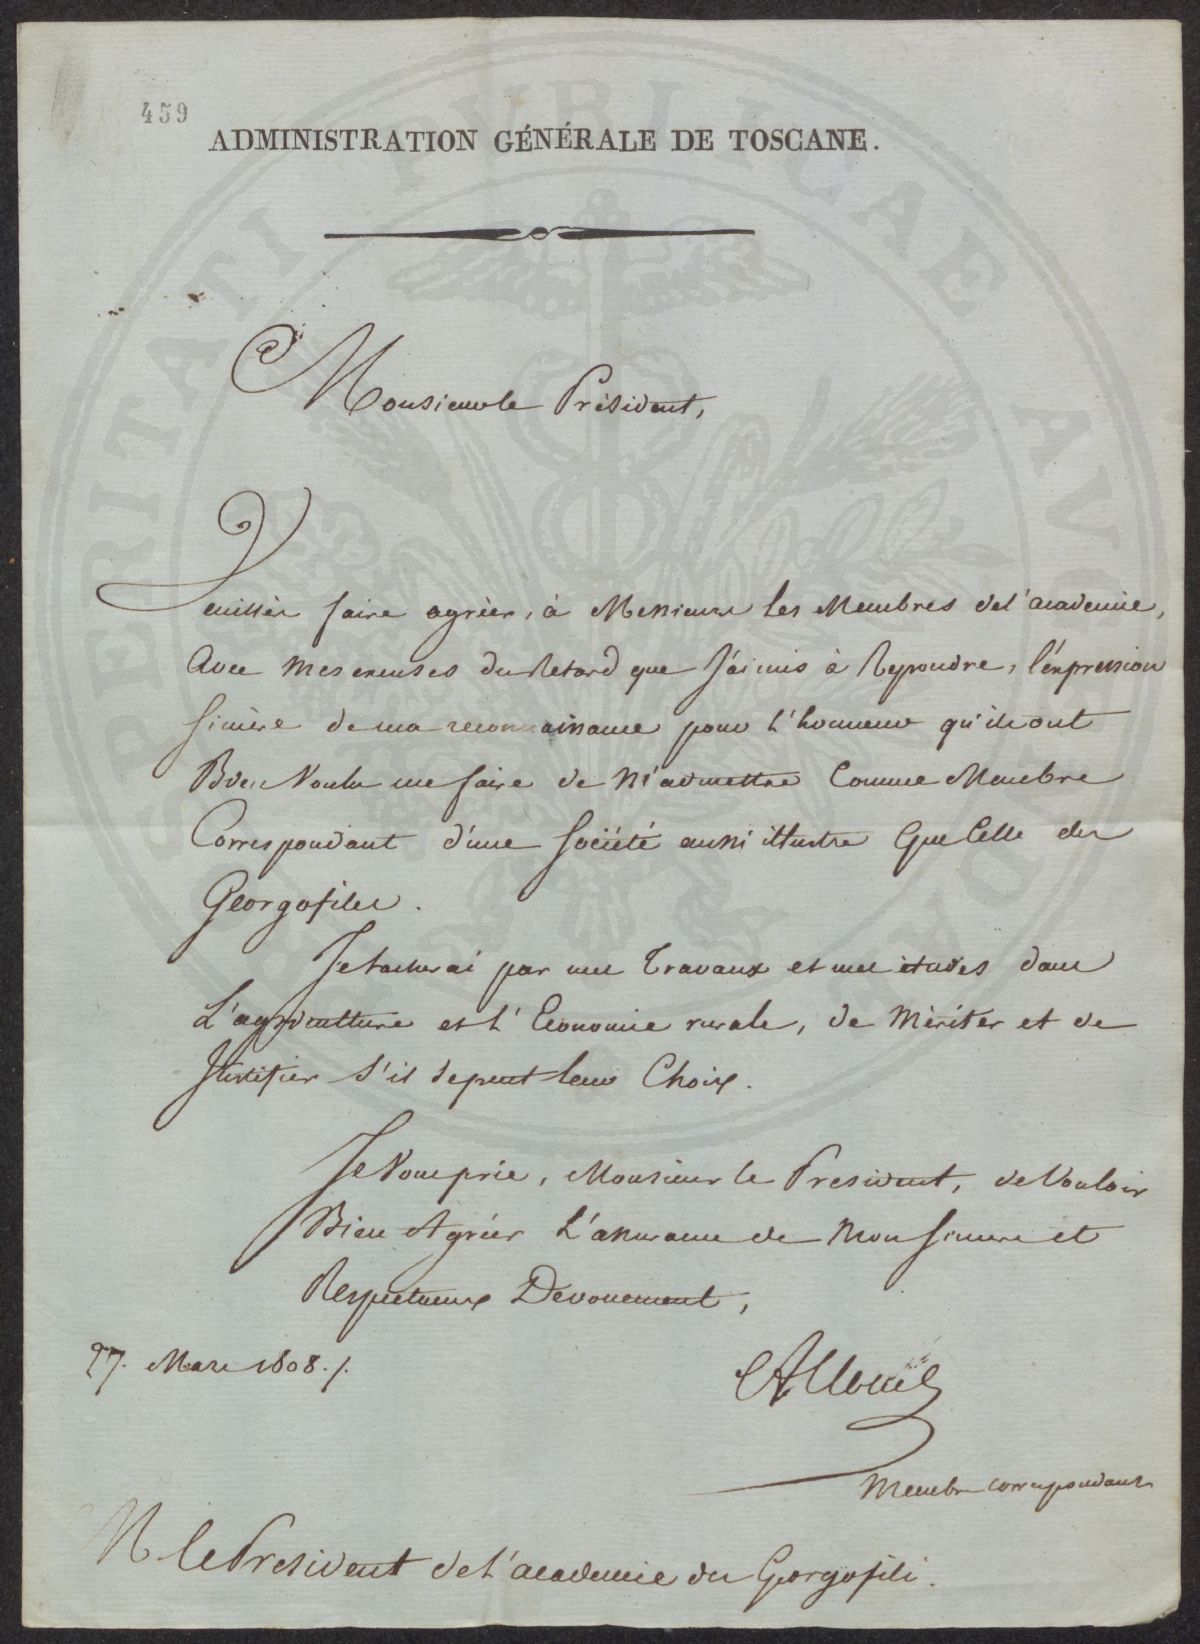 459
ADMINISTRATION GÉNÉRALE DE TOSCANE.
PROSPERITATI PVBLICAE AVGENDAE
Monsieur le Président,
Veuillèz faire agrèer, à Messieurs les Membres de l'academie,
Avec Mes excuses du Retard que J'ai mis à Repondre, l'éxpression
sincère de ma reconnaissance pour L'honneur qu'ils ont
Bien Voulu me faire de M'admettre Comme Membre
Correspondant d'une Société aussi illustre Que Celle des
Georgofiles.
Je tacherai par mes Travaux et mes études dans
L'agriculture et L'Economie rurale, de Mèriter et de
Justifier S'il depent leur Choix.
Je Vous prie, Monsieur le President, de Vouloir
Bien Agrèer L'assurance de Mon sincere et
Respectueux Devouement,
27. Mars 1808./.
Membre correspondant
M le President de L'academie des Georgofili.